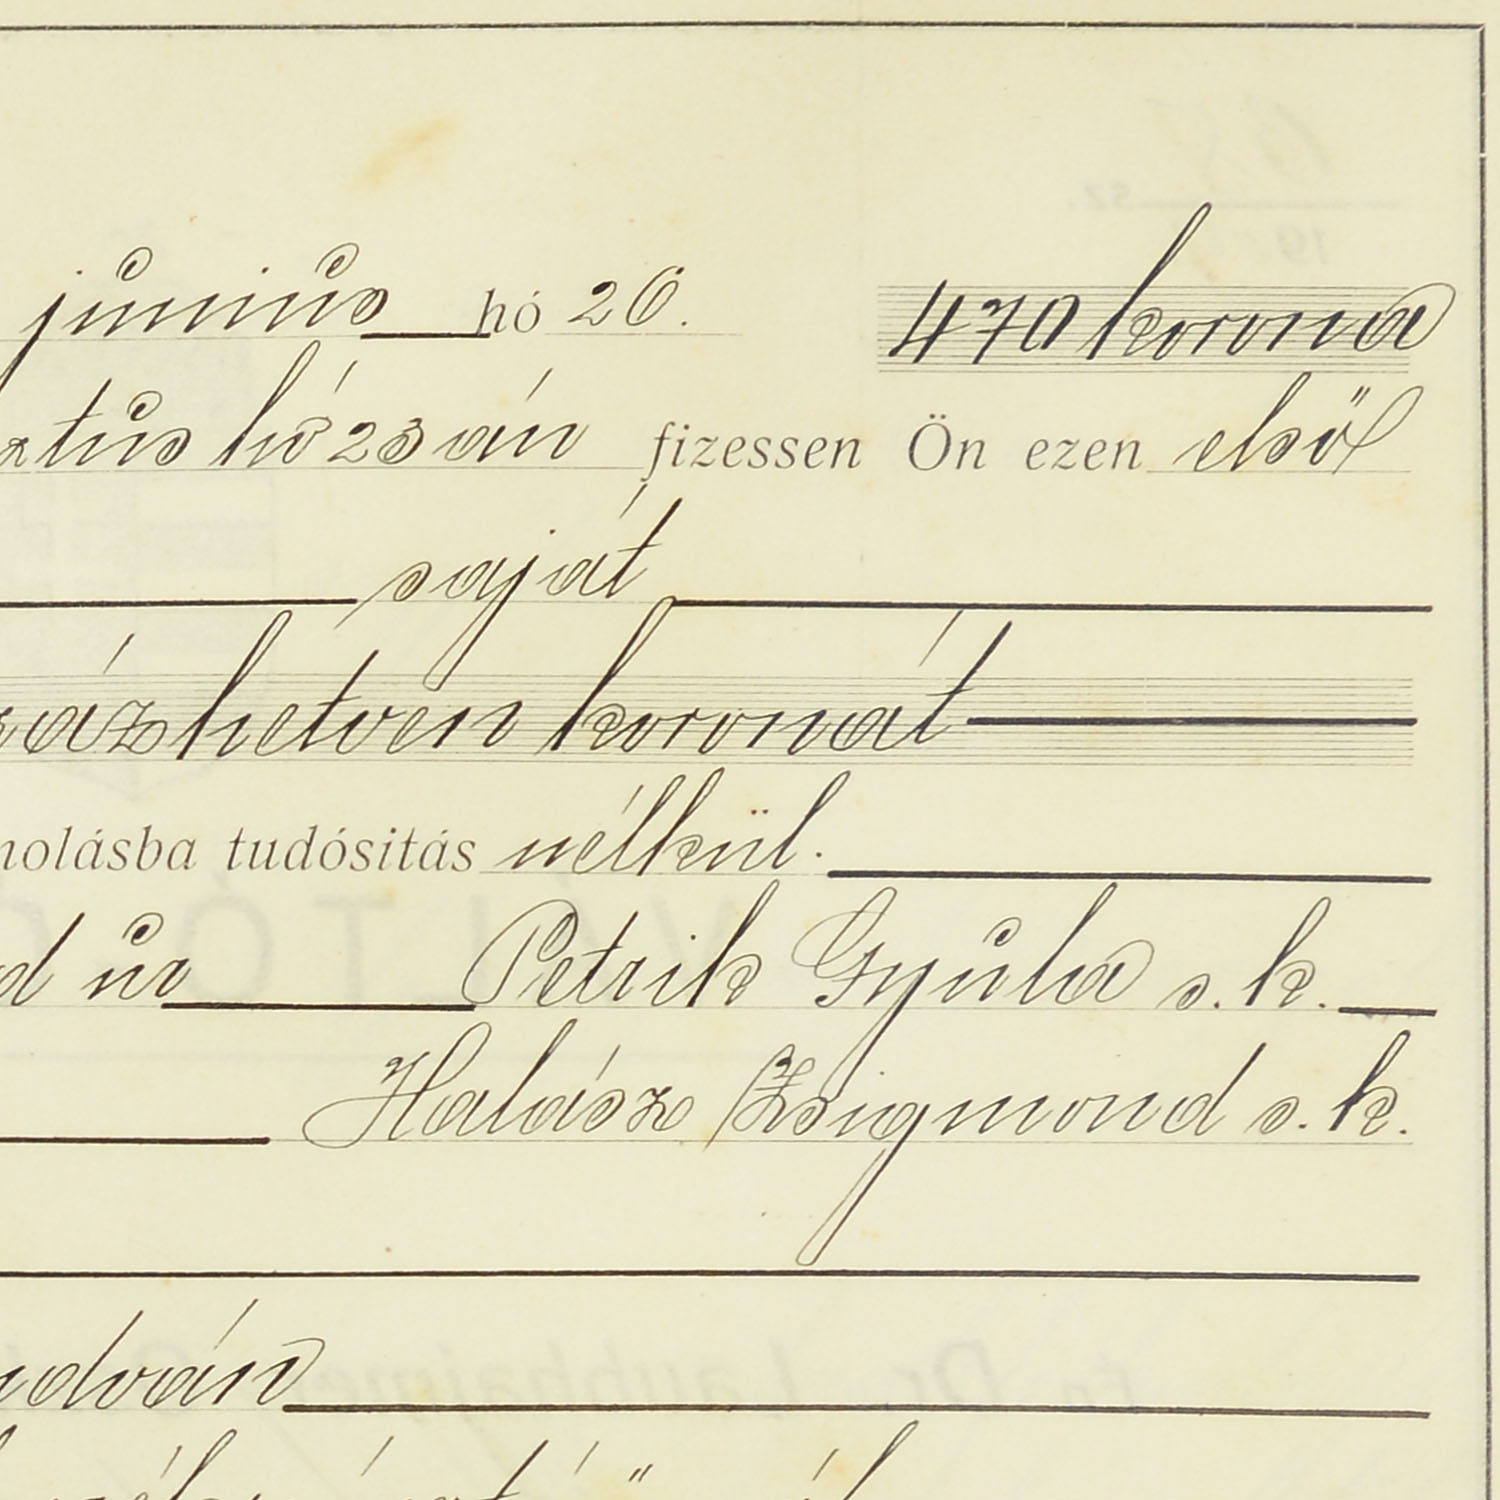 június hó 26. 470 korona
ztus hó 23 án fizessen Ön ezen első
saját
záz hetven koronát
molásba tudósitás nélkül.
d úr Petrik Gyula s. k.
Halász Zsigmond s. k.
udván